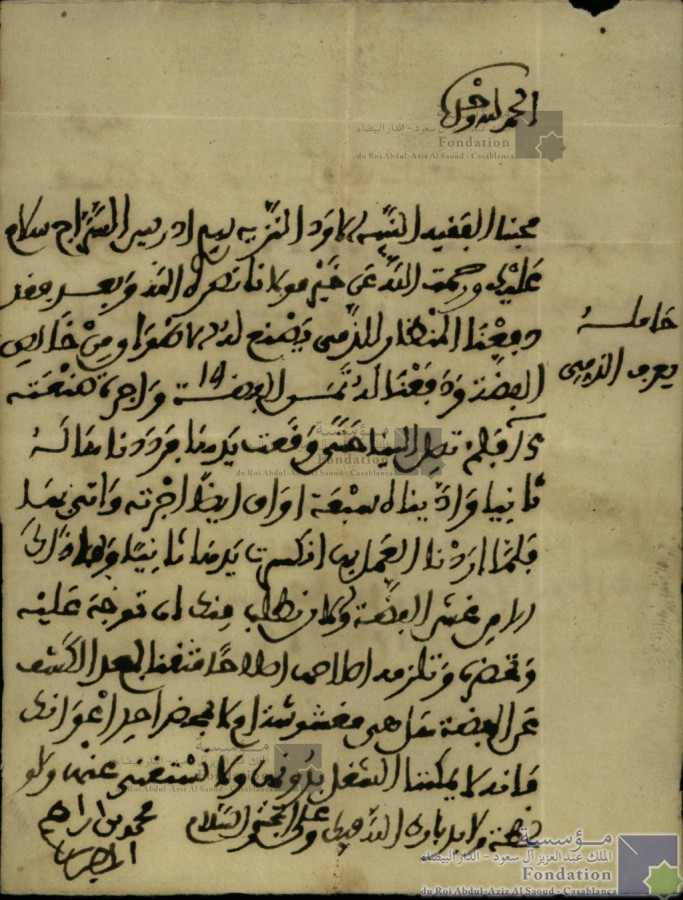 الحمد لله وحده
محبنا الفقيه النبيه الاود النزيه سيدي ادريس السراج سلام
عليك ورحمت الله عن خير مولانا نصره الله وبعد فقد
دفعنا المنظار للذمي يصنع لنا من خالص
الفضة ودفعنا له ثمن الفضة 19 واجرة صنعته
فلم تصل الينا حتى وقعت يد منها فرددناها له
ثانيا وادينا له سبعة اواق ايضا اجرته واتى بها
فلما اردنا العمل بها انكسرت يد منها ثانيا
من غش الفضة ولان نطلب منك ان توجه عليه
وتحضره وتلزمه اصلاحها اصلاحا متقنا بعد الكشف
عن الفضة هل هي مغشوشة ام لا بمحضر احد اعوانك
فانه لا يمكننا الشغل بدونها ولا نستغني عنها ولو
لحظة ولا بد بارك الله فيك وعلى المحبة والسلام
محمد بن ابراهيم
حامله
يعرف الذمي
مؤسسة
الملك عبد العزيز آل سعود - الدار البيضاء
Fondation
du Roi Abdul-Aziz Al Saoud - Casablanca